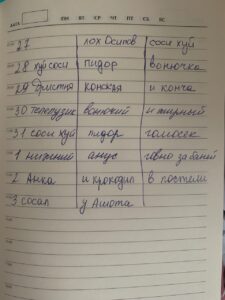 ДАТА ПН ВТ СР ЧТ ПТ СБ ВС
27 лох Осипов соси хуй
28 хуй соси пидор вонючка
29 Дристня конская и конча
30 телепузик вонючий и жирный
31 соси хуй пидор гомосек
1 нижний анус говно за баней
2 Анка и крокодил в постели
3 сосал у Ашота